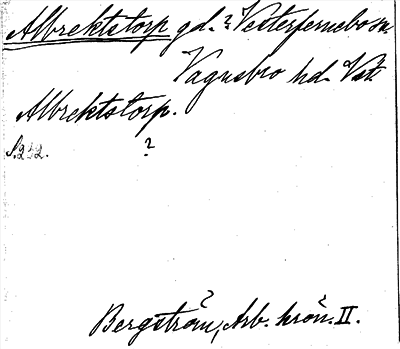 Albrektstorp gd. ? Vesterfernebo sn.
Vagnsbro hd. Vst.
Albrektstorp.
S. 232. ?
Bergström, Arb. krön. II.